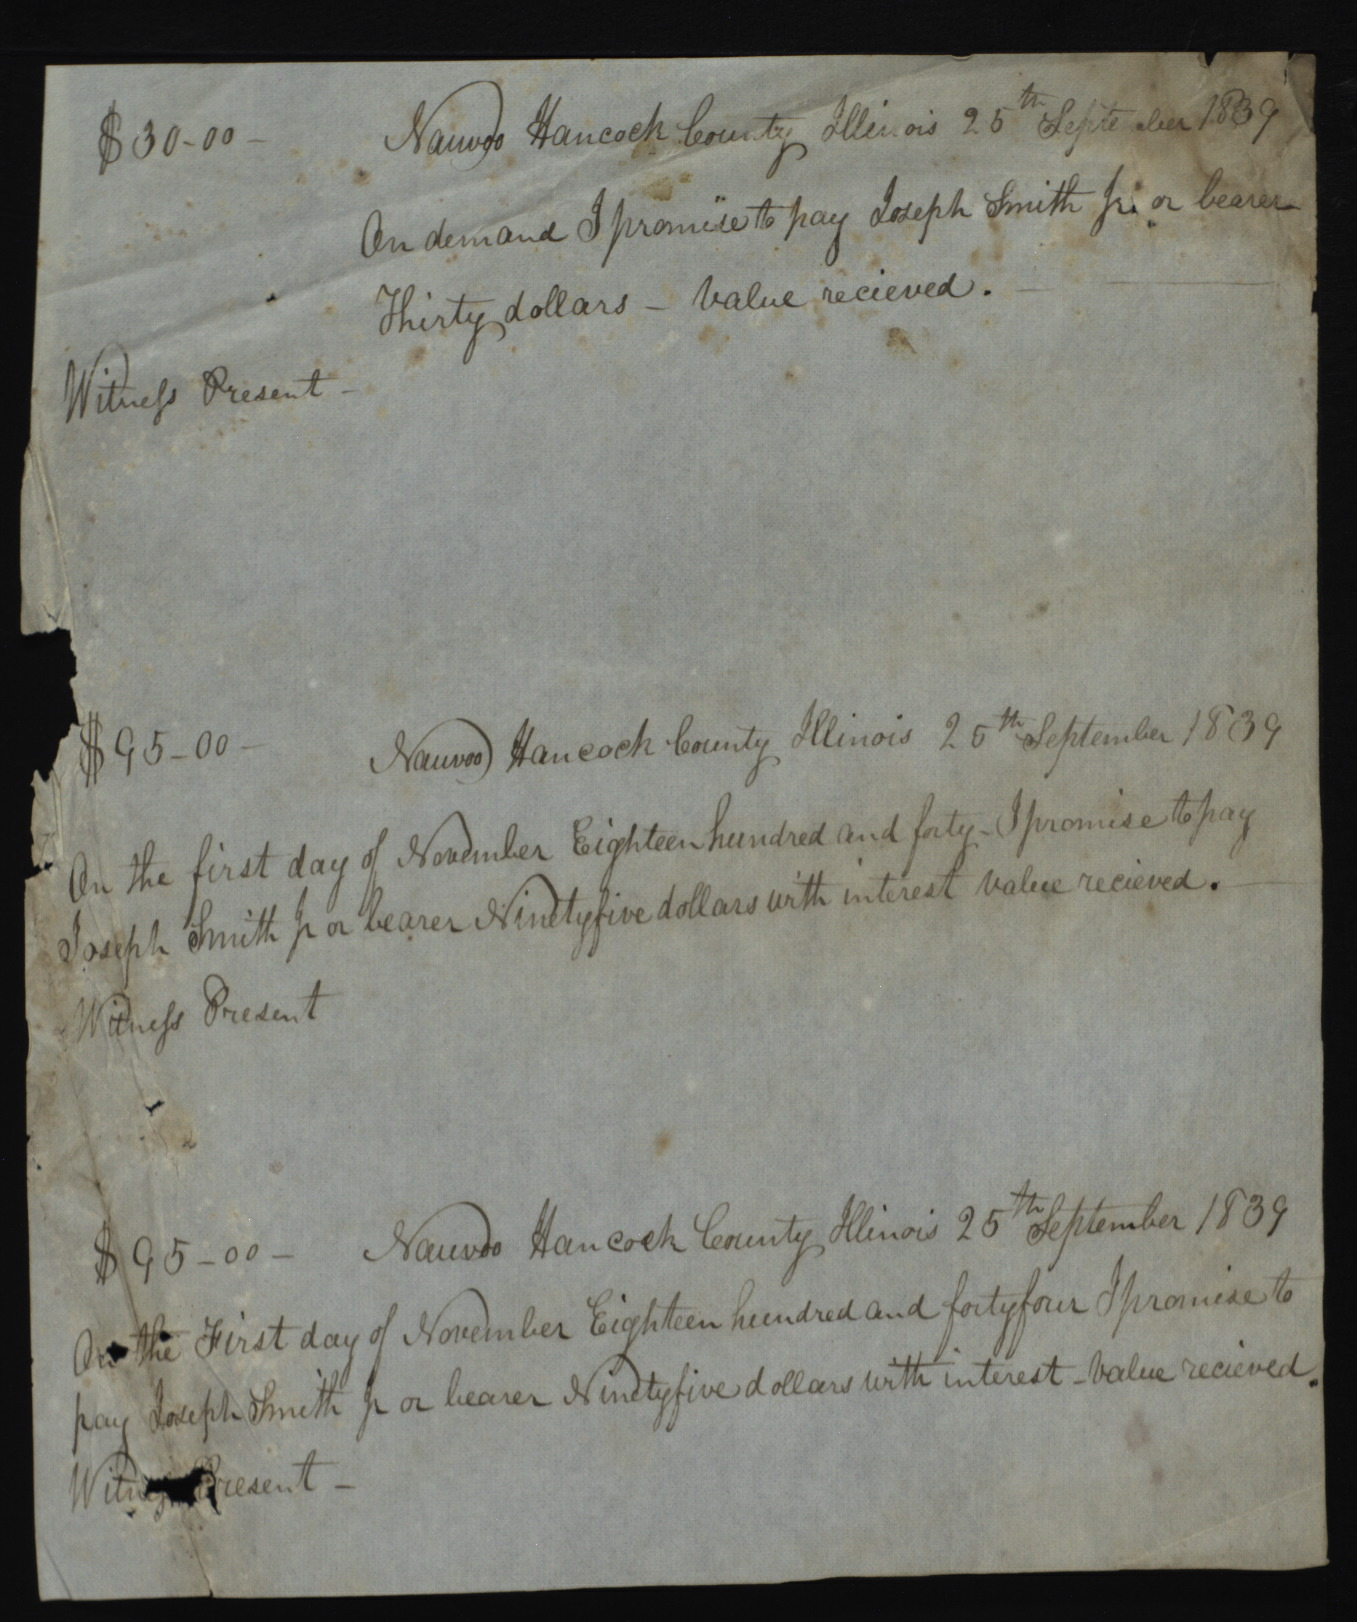 $30-00- Nauvoo Hancock County Illinois 25th September 1839
On demand I promise to pay Joseph Smith Jr. or bearer
Thirty dollars - Value recieved.
Witness Present -
$95-00- Nauvoo Hancock County Illinois 25th September 1839
On the first day of November Eighteen hundred and forty - I promise to pay
Joseph Smith Jr or bearer Ninetyfive dollars with interest value recieved.
Witness Present
$95-00- Nauvoo Hancock County Illinois 25th September 1839
On the First day of November Eighteen hundred and fortyfour I promise to
pay Joseph Smith Jr or bearer Ninetyfive dollars with interest - Value recieved.
Witness Present -